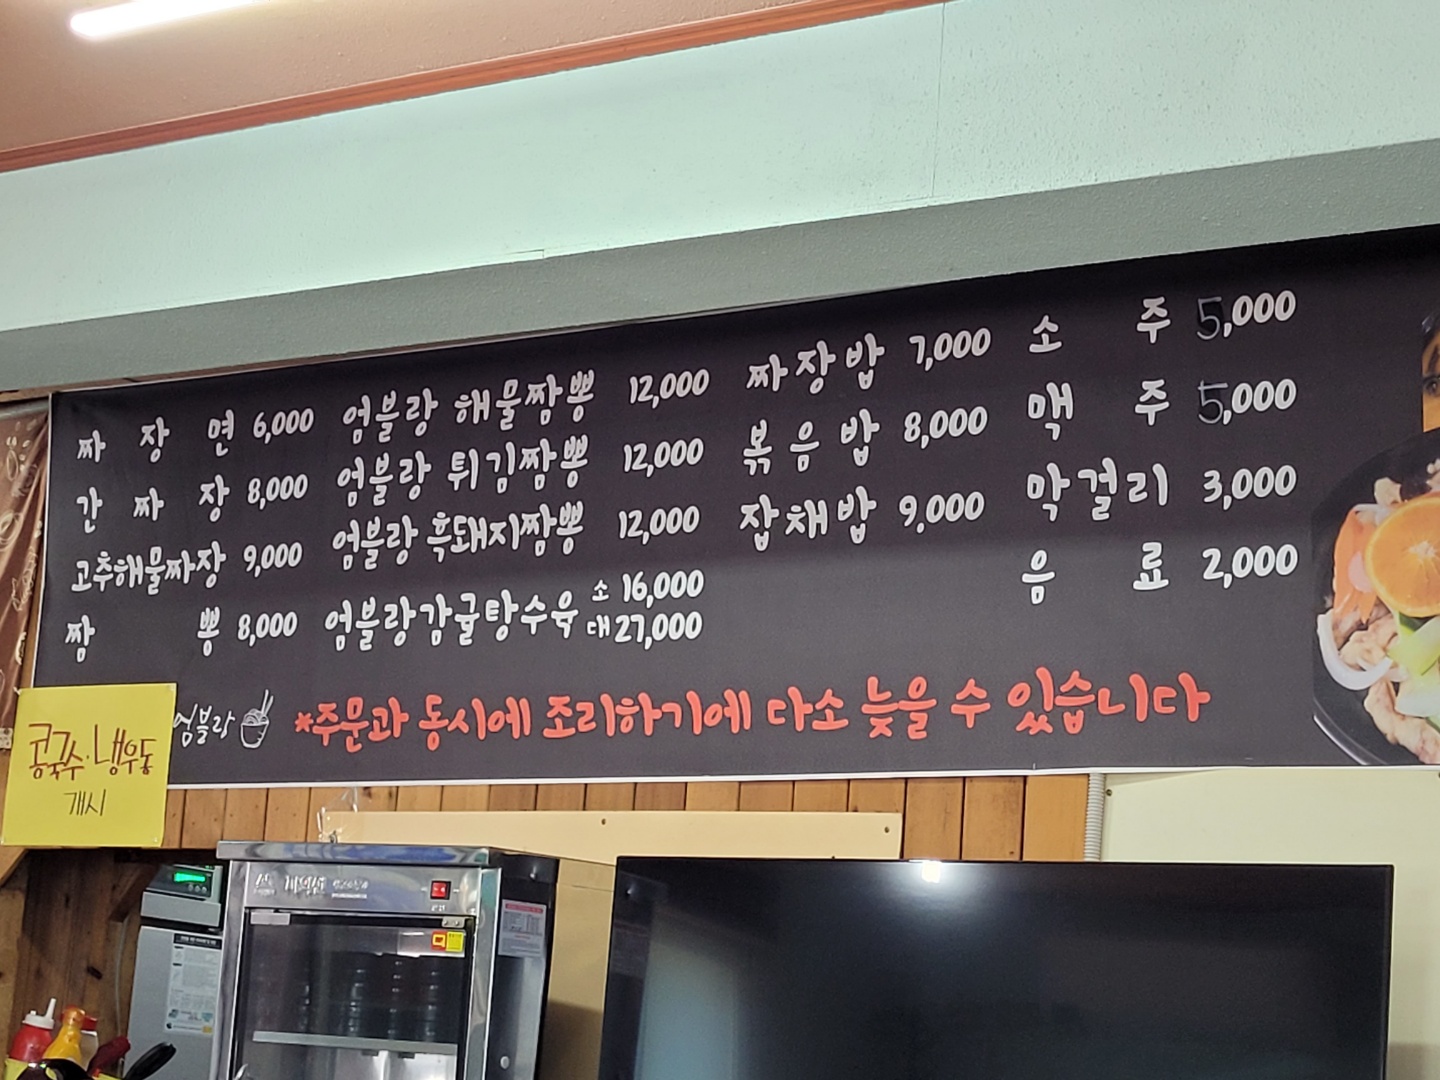 짜장면 6,000
간짜장 8,000
고추해물짜장 9,000
짬뽕 8,000
엄블랑 해물짬뽕 12,000
엄블랑 튀김짬뽕 12,000
엄블랑 흑돼지짬뽕 12,000
엄블랑감귤탕수육 소 16,000
대 27,000
짜장밥 7,000
볶음밥 8,000
잡채밥 9,000
소주 5,000
맥주 5,000
막걸리 3,000
음료 2,000
엄블랑
*주문과 동시에 조리하기에 다소 늦을 수 있습니다
콩국수·냉우동
개시